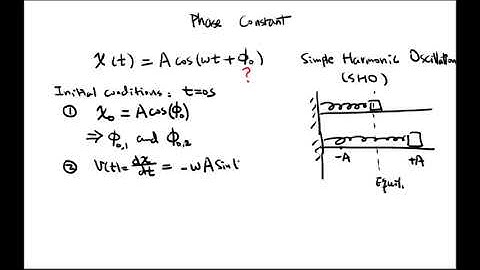 Phase Constant
x(t) = A cos(ωt + ϕ₀)
?
Initial conditions: t=0s
① x₀ = A cos(ϕ₀)
⇒ ϕ₀,₁ and ϕ₀,₂
② V(t) = dx/dt = -ωA Sin(
Simple Harmonic Oscillation
(SHO)
-A +A
Equil.